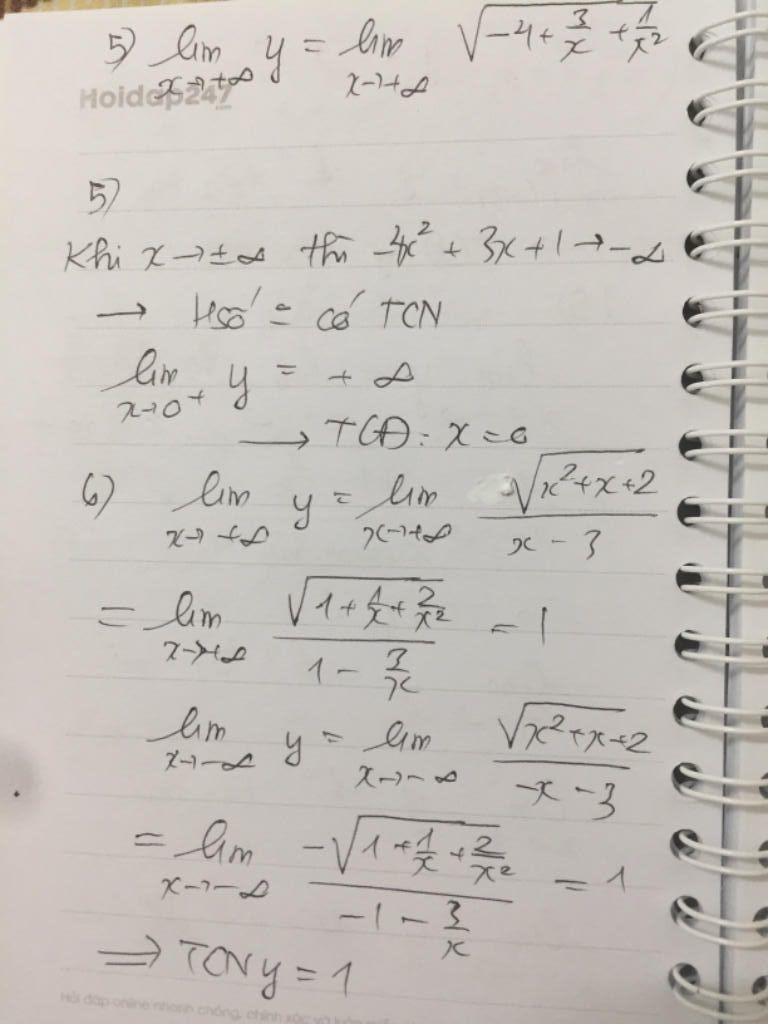 5) lim x→+∞ y = lim x→+∞ √(-4 + 3/x + 1/x²)
Hoidap247
5)
Khi x → ±∞ thì -4x² + 3x + 1 → -∞
→ Hsố = có TCN
lim x→0⁺ y = +∞
→ TCĐ: x = 0
6) lim x→+∞ y = lim x→+∞ √(x²+x+2) / (x - 3)
= lim x→+∞ √(1 + 1/x + 2/x²) / (1 - 3/x) = 1
lim x→-∞ y = lim x→-∞ √(x²+x+2) / (-x - 3)
= lim x→-∞ -√(1 + 1/x + 2/x²) / (-1 - 3/x) = 1
⇒ TCN y = 1
Hỏi đáp online nhanh chóng, chính xác và